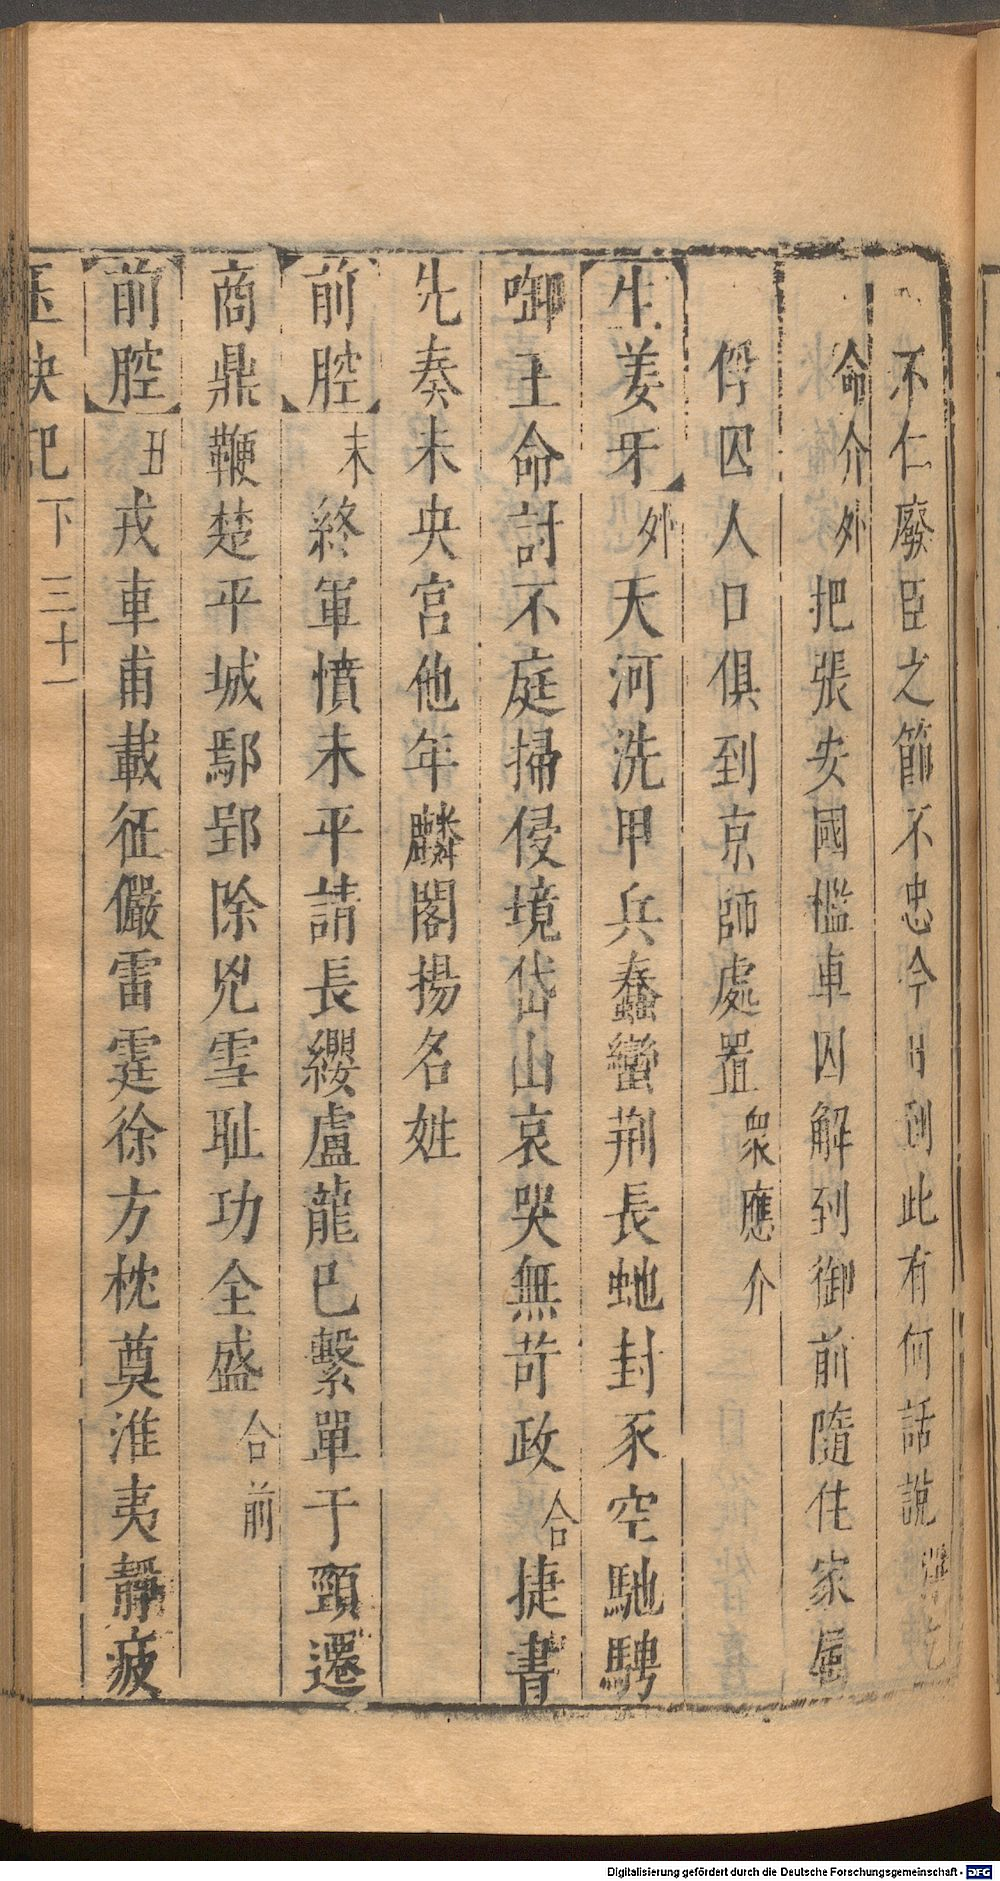 不仁廢臣之節不忠今日到此有何話說淨乞
命介外把張安國檻車囚解到御前隨住家屬
俘囚人口俱到京師處置衆應介
生姜牙外天河洗甲兵蠢蠻荆長虵封豕空馳騁
啣主命討不庭掃侵境岱山哀哭無苛政合捷書
先奏未央宮他年麟閣揚名姓
前腔末終軍憤未平請長纓盧龍已繫單于頸遷
商鼎鞭楚平城鄢郢除兇雪耻功全盛合前
前腔丑戎車甫載征儼雷霆徐方枕奠淮夷靜疲
玉玦記下 三十一
Digitalisierung gefördert durch die Deutsche Forschungsgemeinschaft - DFG